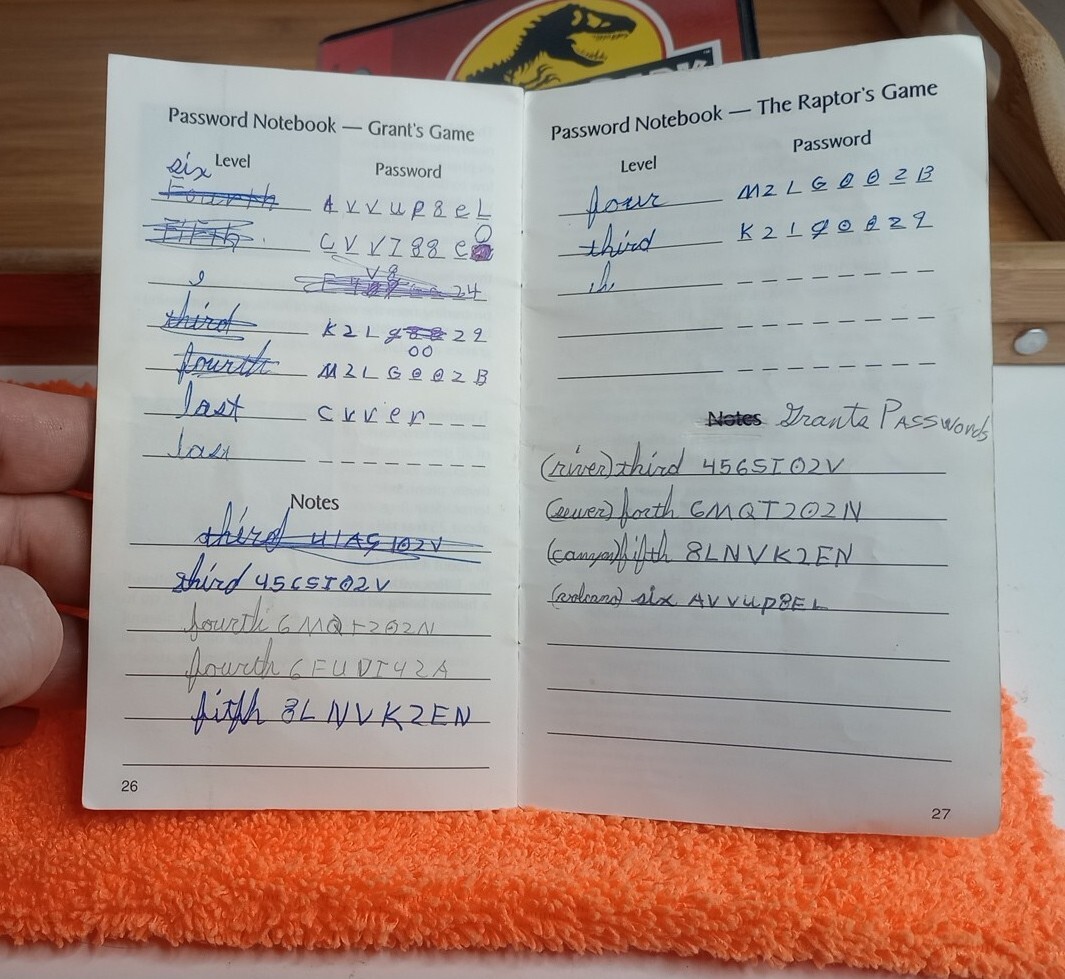 Password Notebook — Grant's Game
Level Password
six
Fourth A V V U P 8 e L
Fifth C V V 7 8 8 e O
V 8
24
third K 2 L g 8 8 2 9
00
fourth M 2 L G 0 0 2 B
last C V V e r _ _ _
las
Notes
third U1AS102V
third 456SI02V
fourth 6 MQT202N
fourth 6 FUVI42A
fifth 8L NVK2EN
26
Password Notebook — The Raptor's Game
Level Password
four M 2 L G 0 0 2 B
third K 2 L g 0 0 2 9
th
Notes Grants Passwords
(river) third 456SI02V
(sewer) forth 6MQT202N
(canyon) fifth 8LNVK2EN
(volcano) six AVVUP8EL
27